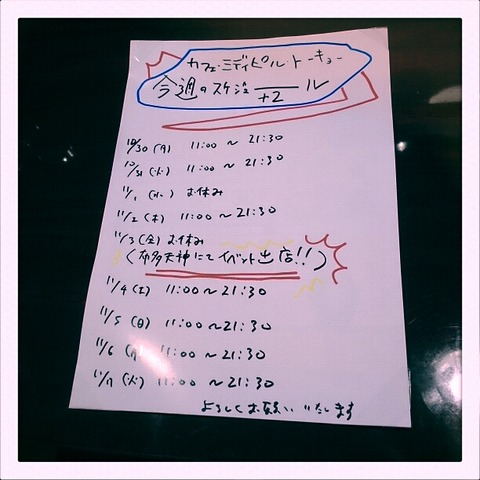 カフェ・ミディピル・トーキョー
今週のスケジュール
+2
10/30(月) 11:00〜21:30
10/31(火) 11:00〜21:30
11/1(水) お休み
11/2(木) 11:00〜21:30
11/3(金)お休み
(布多天神にてイベント出店!!)
11/4(土) 11:00〜21:30
11/5(日) 11:00〜21:30
11/6(月) 11:00〜21:30
11/7(火) 11:00〜21:30
よろしくお願いいたします